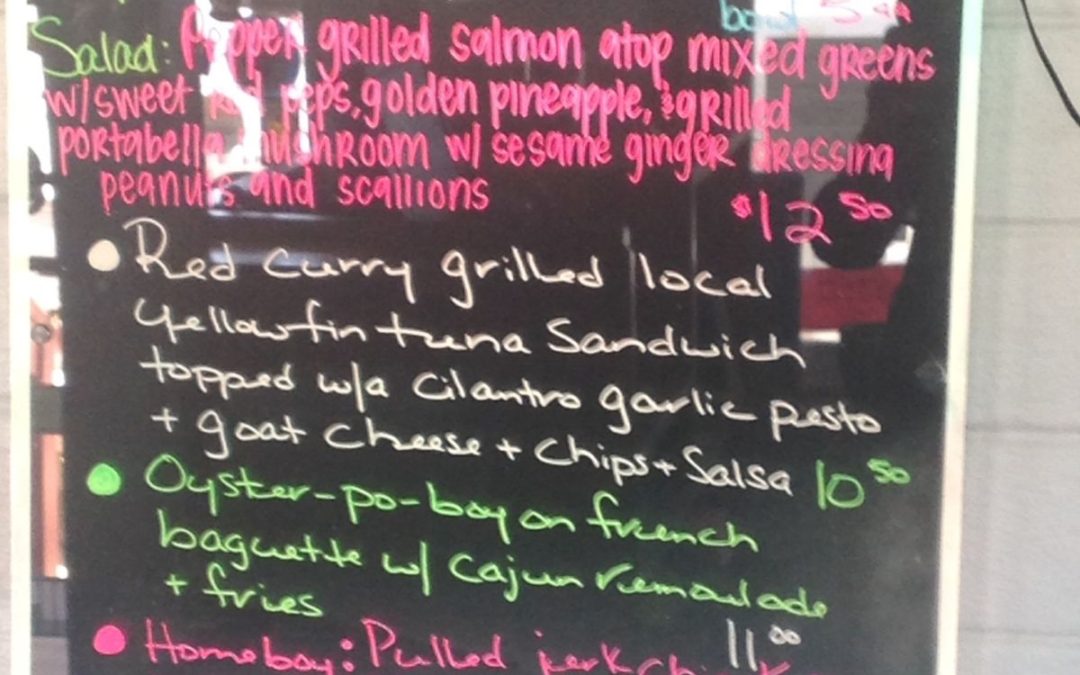 bowl 5
Salad: Pepper grilled salmon atop mixed greens
w/sweet red peps, golden pineapple, & grilled
portabella mushroom w/ sesame ginger dressing
peanuts and scallions $12 50
Red Curry grilled local
yellowfin tuna Sandwich
topped w/a Cilantro garlic pesto
+ goat cheese + Chips + Salsa 10 50
Oyster-po-boy on french
baguette w/ Cajun remoulade
+ fries
11 00
Homeboy: Pulled jerk